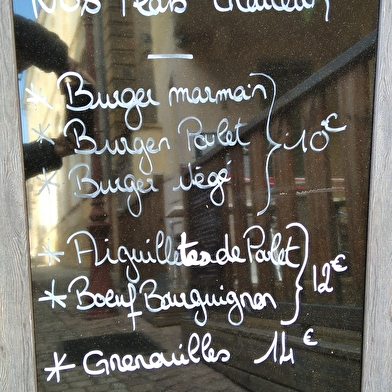 Nos Plats Chaleur
* Burger marmain
* Burger Poulet
* Burger Végé
10€
* Aiguilletes de Poulet
* Boeuf Bourguignon
12€
* Grenouilles 14€